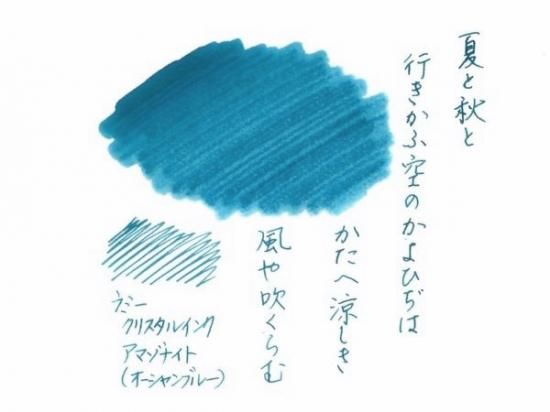 夏と秋と
行きかふ空のかよひぢは
かたへ涼しき
風や吹くらむ
ラミー
クリスタルインク
アマゾナイト
(オーシャンブルー)